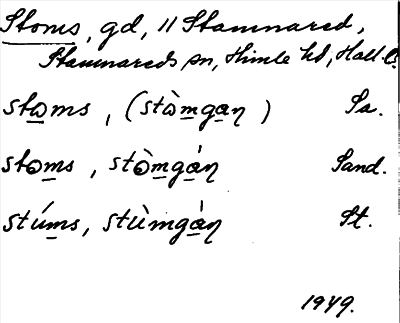 Stoms, gd, 11 Stamnared,
Stamnareds sn, Himle hd, Hall. l.
stω̲ms, (stὼm̲ga̲ŋ) Sa.
stωm̲s, stὼm̲gá̲ŋ Sand.
stúm̲s, stùm̲gá̲ŋ St.
1949.